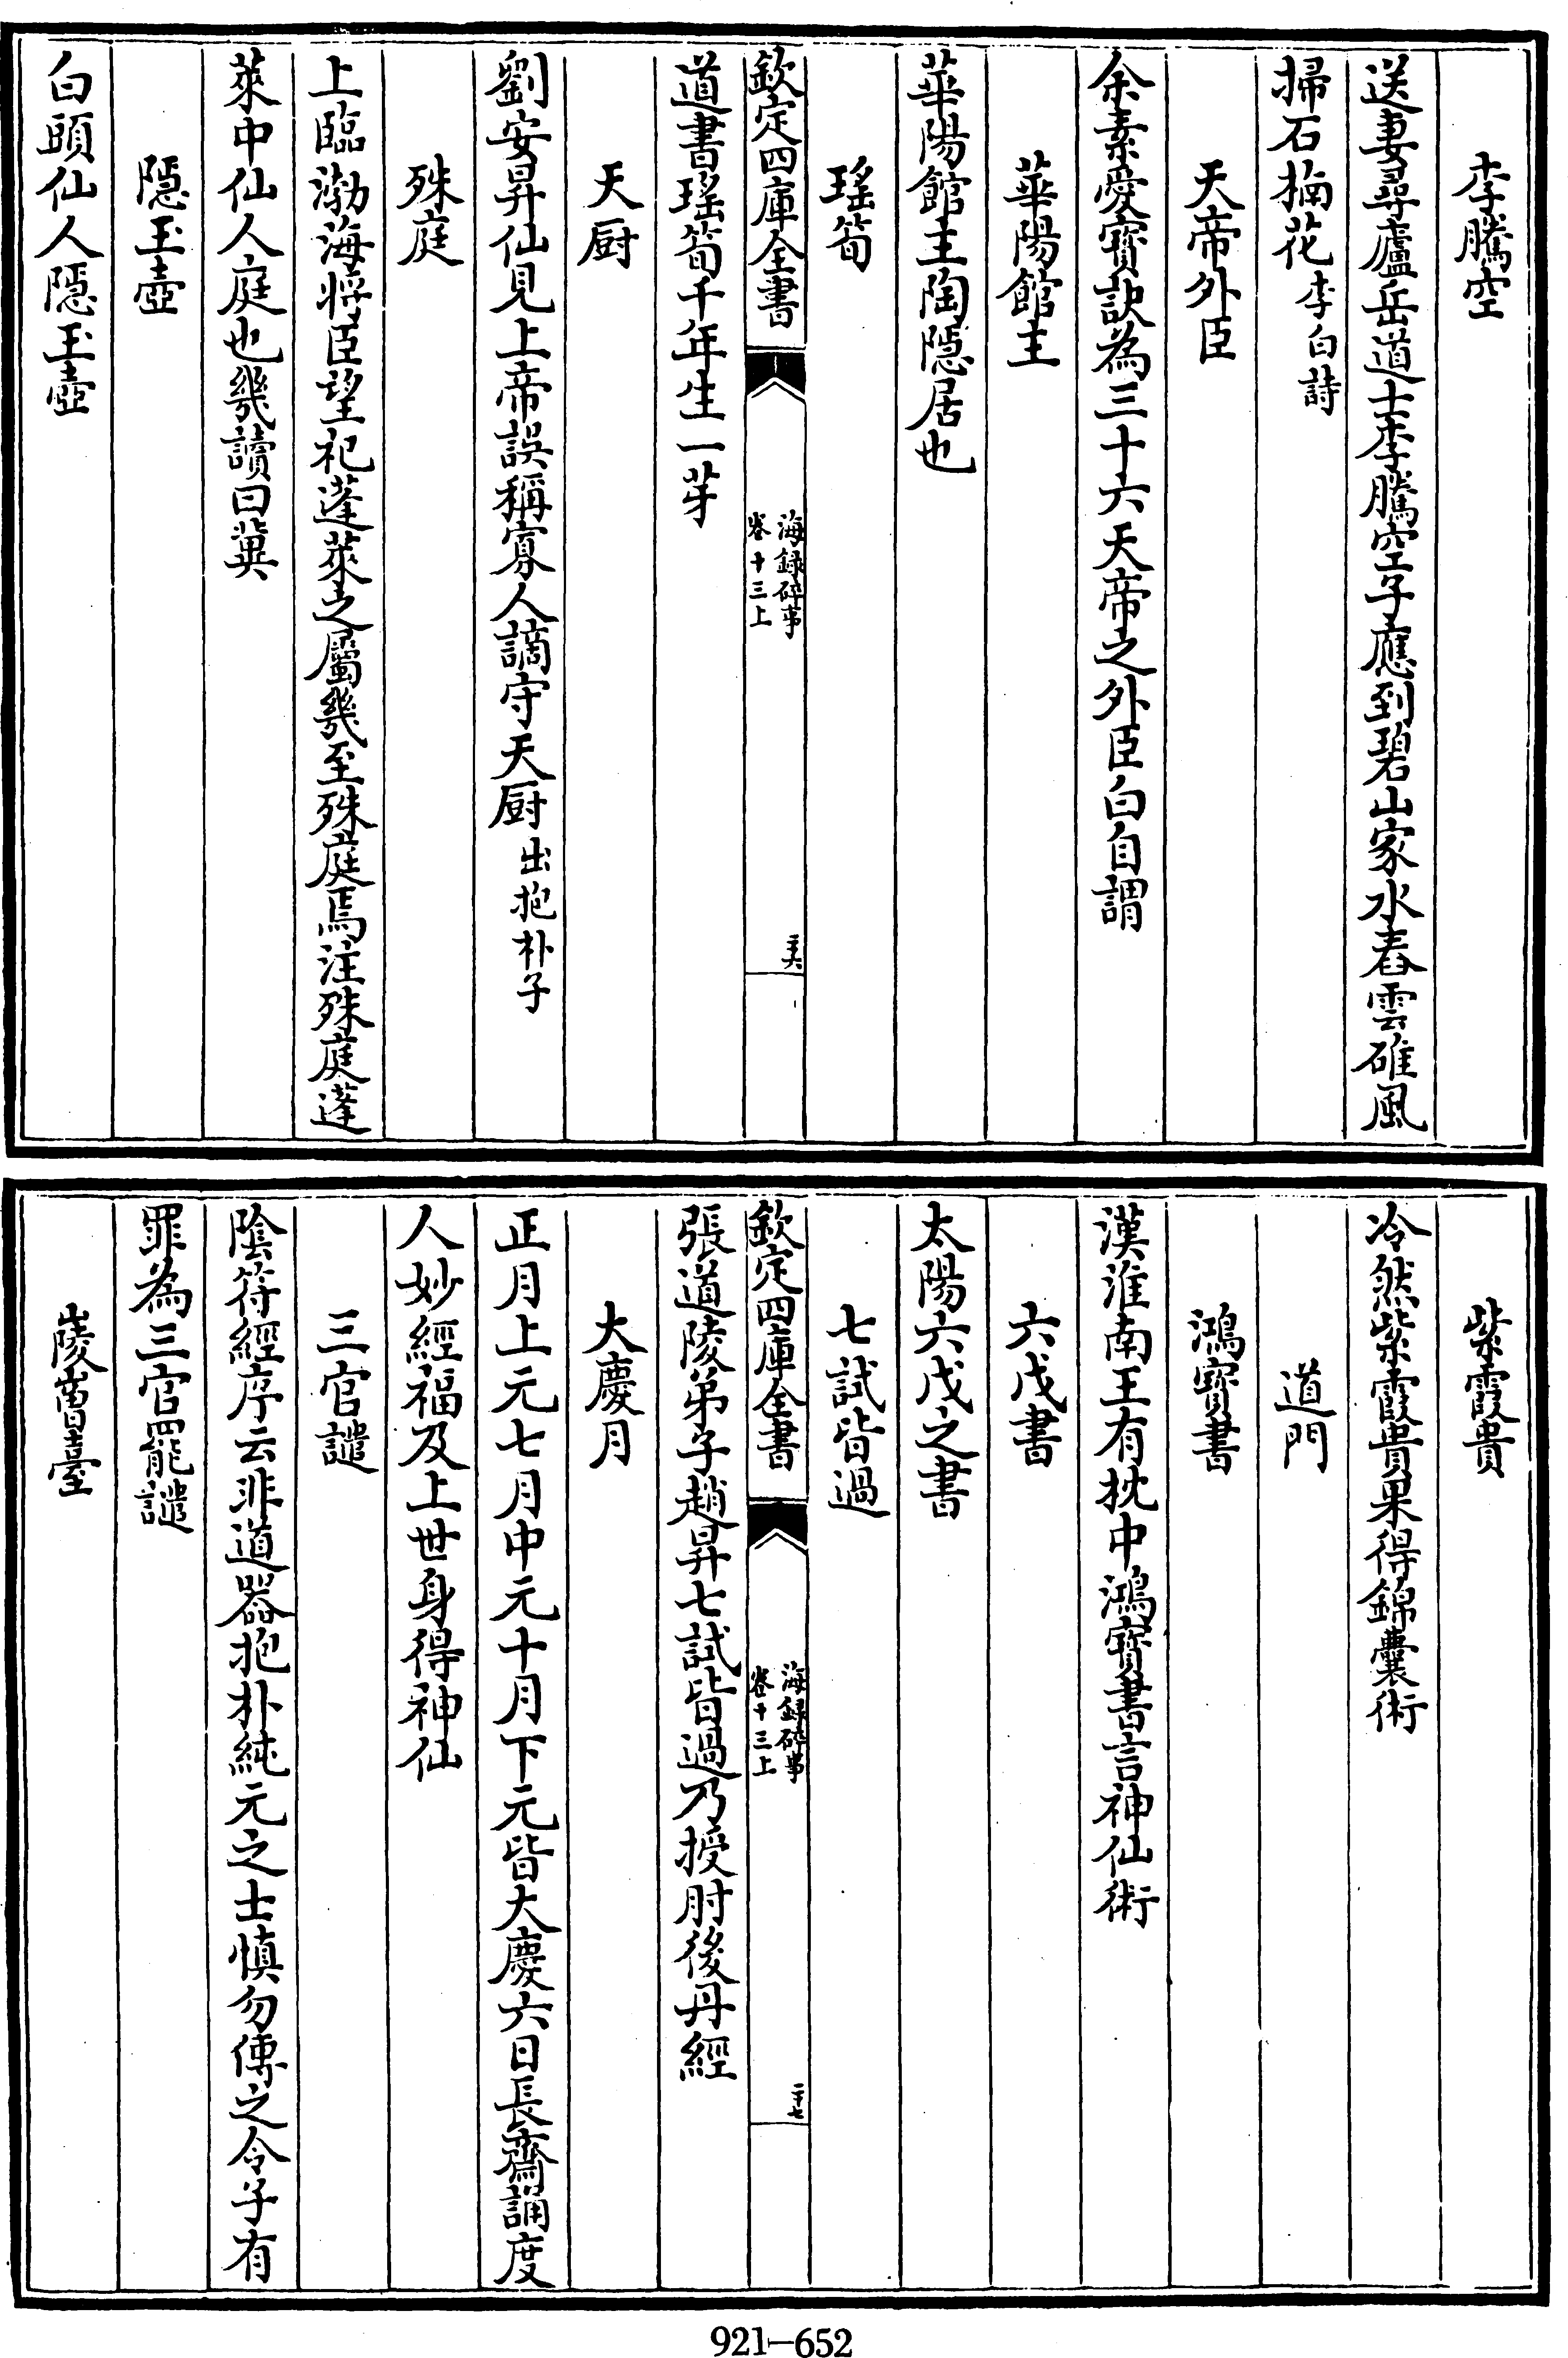 李騰空
送妻尋廬岳道士李騰空子應到碧山家水舂雲碓風
掃石楠花李白詩
天帝外臣
余素愛寳訣為三十六天帝之外臣白自謂
華陽館主
華陽館主陶隱居也
瑤筍
欽定四庫全書
海錄碎事
卷十三上
三十六
道書瑤筍千年生一芽
天厨
劉安昇仙見上帝誤稱寡人謫守天厨出抱朴子
殊庭
上臨渤海將臣望祀蓬萊之屬幾至殊庭焉注殊庭蓬
萊中仙人庭也幾讀曰冀
隱玉壺
白頭仙人隱玉壺
紫霞貴
冷然紫霞貴果得錦囊術
道門
鴻寳書
漢淮南王有枕中鴻寳書言神仙術
六戊書
太陽六戊之書
七試皆過
欽定四庫全書
海錄碎事
卷十三上
三十七
張道陵弟子趙昇七試皆過乃授肘後丹經
大慶月
正月上元七月中元十月下元皆大慶六日長齋誦度
人妙經福及上世身得神仙
三官譴
陰符經序云非道器抱朴純元之士慎勿傳之令子有
罪為三官罷譴
崚嶒臺
921-652